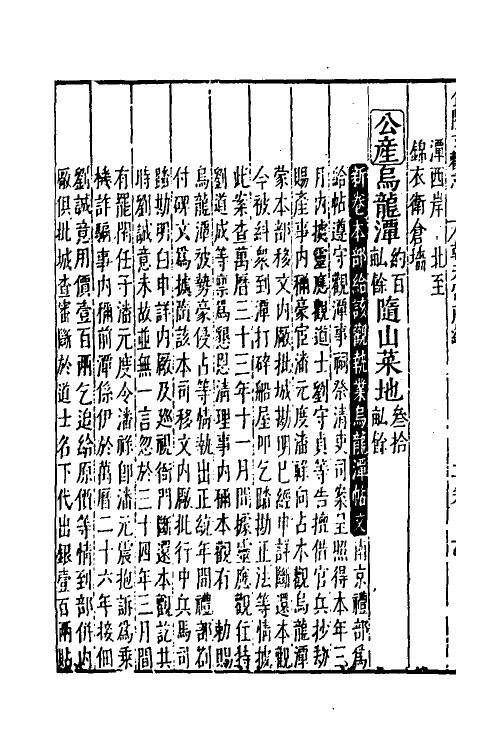 潭西岸北至
錦衣衛倉墻
公產烏龍潭約百畝餘隨山菜地叁拾畝餘
新卷本部給該觀執業烏龍潭帖文南京禮部爲
給帖遵守觀潭事祠祭清吏司案呈照得本年三
月內據靈應觀道士劉守貞等告擒僣官兵抄劫
賜產事內稱豪宦潘元度潘祿向占本觀烏龍潭
蒙本部移文內厰批城勘明已經申詳斷還本觀
今被糾衆到潭打碑船屋叩乞踏勘正法等情據
此案查萬曆三十三年十一月間據靈應觀住持
劉道成等禀爲懇恩清理事內稱本觀有勅賜
烏龍潭被勢豪侵占等情執出正統年間禮部劄
付碑文爲據隨該本司移文內厰批行中兵馬司
踏勘明白申詳內厰及廵視衙門斷還本觀訖共
時劉誠意未故並無一言忽於三十四年三月間
有罷閑任于潘元度令潘祿卽潘元震抱訴爲乗
機詐騙事內稱前潭係伊於萬曆二十六年接佃
劉誠意用價壹百兩乞追給原價等情到部併內
厰俱批城查審斷於道士名下代出銀壹百兩貼